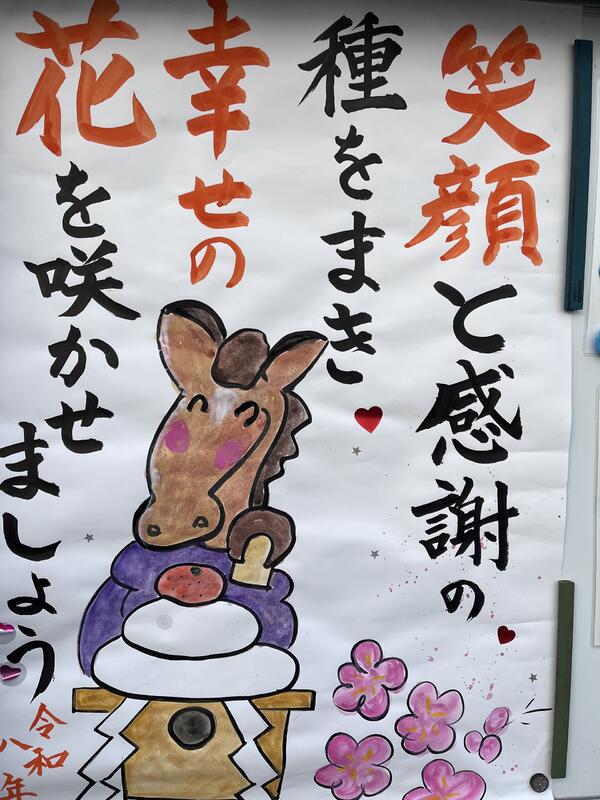 笑顔と感謝の
種をまき
幸せの
花を咲かせましょう
令和
八年